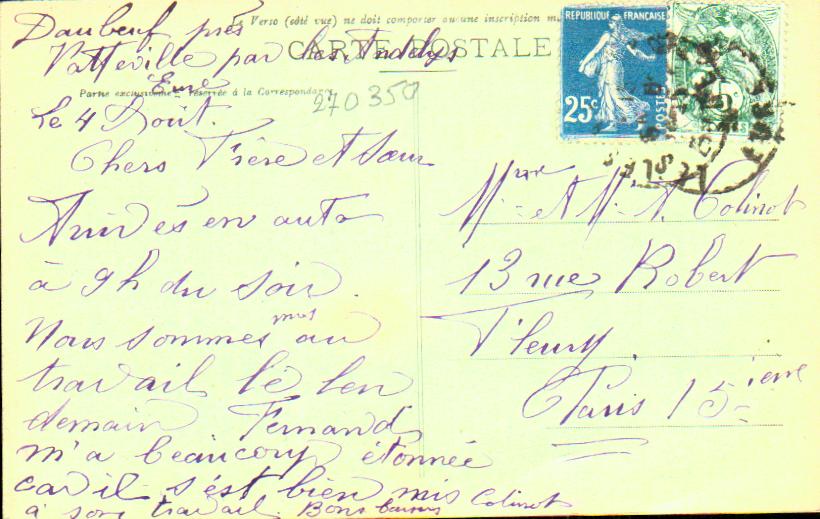 Le Verso (côté vue) ne doit comporter aucune inscription
CARTE POSTALE
Partie exclusivement réservée à la Correspondance
270350
Daubeuf près
Vatteville par les Andelys
Eure
Le 4 Août.
Chers Frère et Sœur
Arrivés en auto
à 9h du soir.
Nous sommes mis au
travail le len
demain Fernand
m'a beaucoup étonnée
car il s'est bien mis
à son travail. Bons baisers Colinot
RÉPUBLIQUE FRANÇAISE
25c
POSTES
5c
Mme et Mr A. Colinot
13 rue Robert
Fleury.
Paris 15 ième